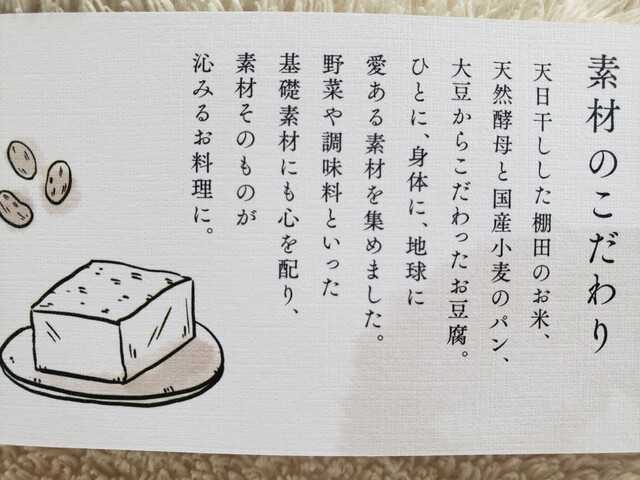 素材のこだわり
天日干しした棚田のお米、
天然酵母と国産小麦のパン、
大豆からこだわったお豆腐。
ひとに、身体に、地球に
愛ある素材を集めました。
野菜や調味料といった
基礎素材にも心を配り、
素材そのものが
沁みるお料理に。